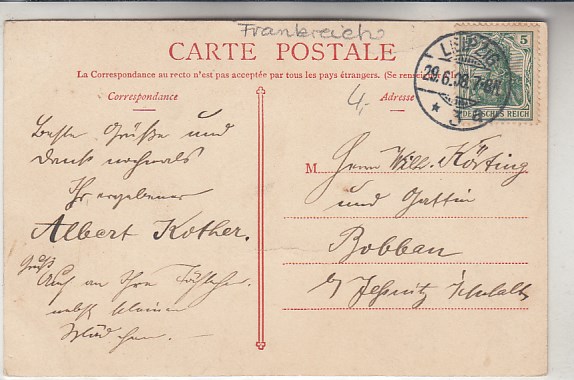 Frankreich
CARTE POSTALE
La Correspondance au recto n'est pas acceptée par tous les pays étrangers. (Se rensei
Correspondance
Adresse
4,-
LEIPZIG
29.6.08.7-8N.
* 3
5
DEUTSCHES REICH
Beste Grüße und
Dank nochmals
Ihr ergebener
Albert Kother.
Gruß
Auf an Ihre
nebst kleinen
M Herrn Wilh. Körting
und Gattin
Bobbau
b/ Jeßnitz